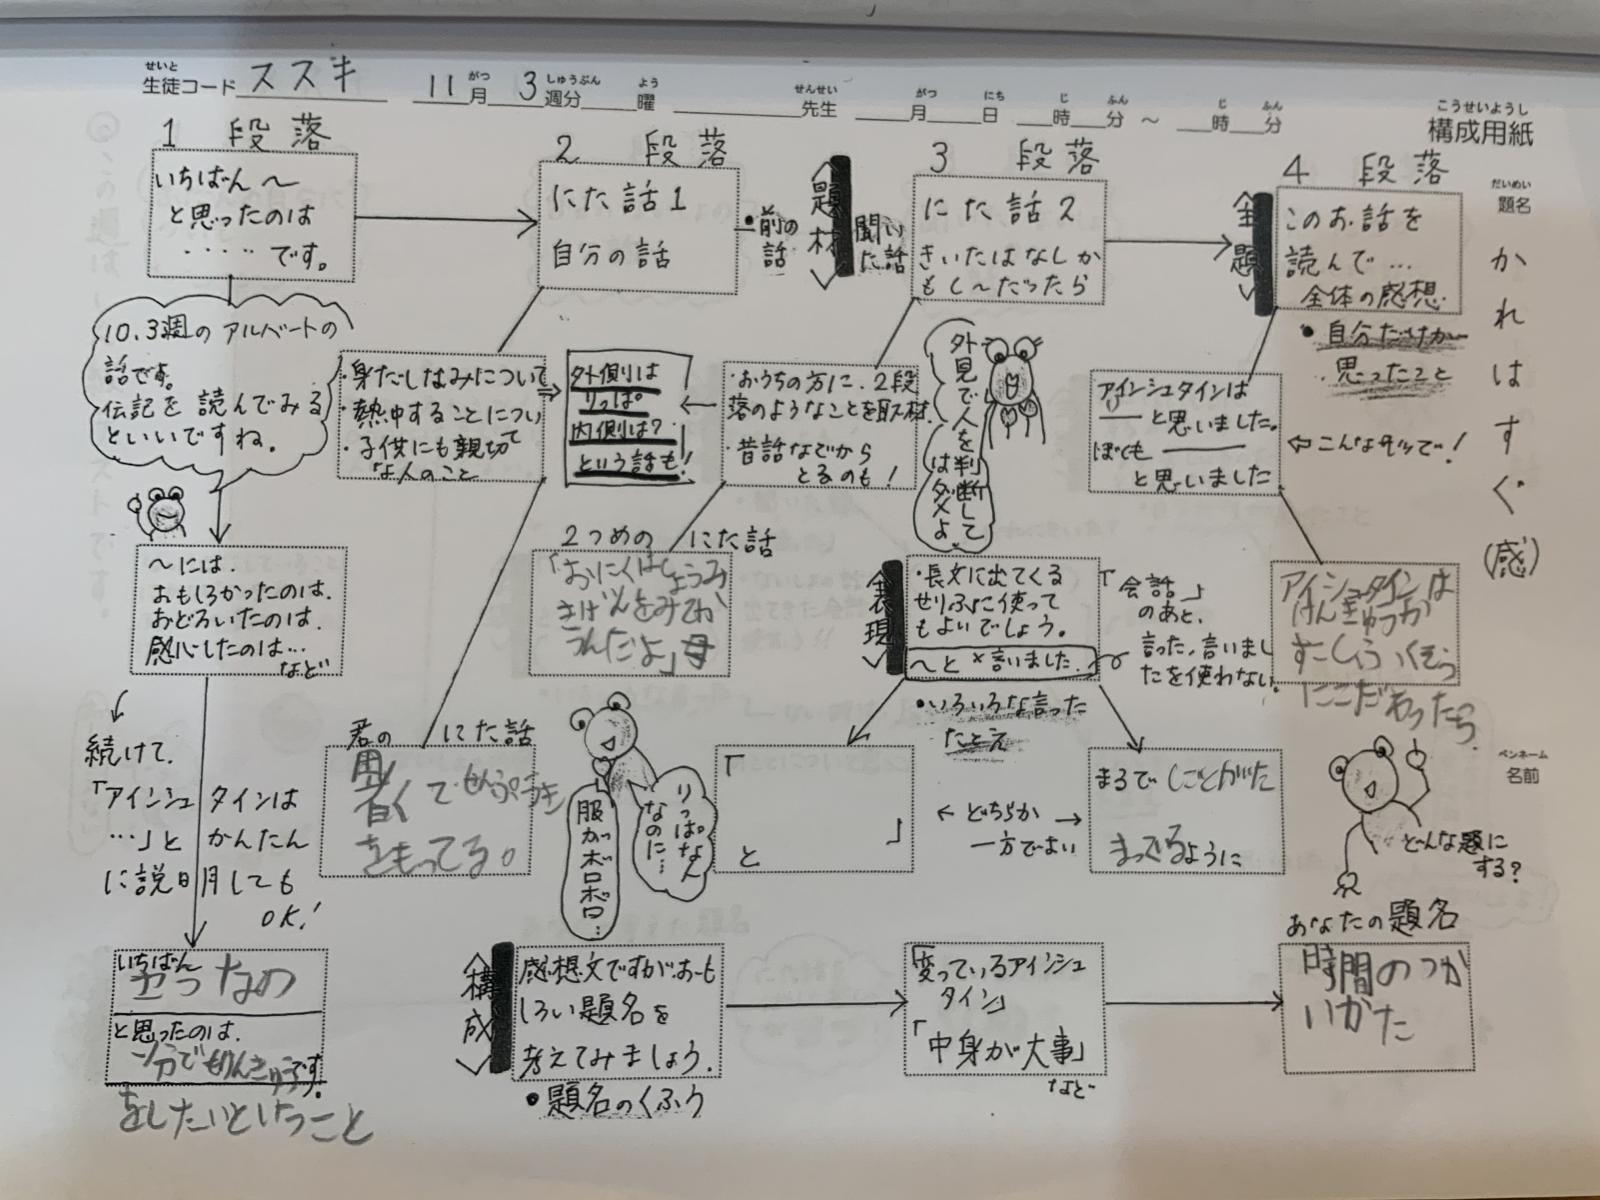 せいと
生徒コード ススキ
11 月 3 週分 曜 先生 月 日 時 分 ～ 時 分
がつ しゅうぶん よう せんせい がつ にち じ ふん じ ふん
こうせいようし
構成用紙
だいめい
題名
かれはすぐ(感)
1 段落
いちばん～
と思ったのは
‥‥です。
10.3週のアルバートの
話です。
伝記を読んでみる
といいですね。
～には.
おもしろかったのは.
おどろいたのは.
感心したのは…
など
続けて.
「アインシュタインは
…」とかんたん
に説明しても
OK!
いちばん
と思ったのは.
です.
をしたいということ
2 段落
にた話1
自分の話
・前の
話
・身だしなみについて
・熱中することについ
て
・子供にも親切
な人のこと
外側は
りっぱ。
内側は?
という話も!
君の にた話
をもってる。
りっぱな人
なのに…
服がボロボロ…
<題材>
聞い
た話
3 段落
にた話2
きいたはなしか
もし～だったら
・おうちの方に、2段
落のようなことを取材.
・昔話などから
とるのも!
外見で人を判断して
はダメよ
2つめの にた話
「おにくはしょうみ
きげんをみてか
うんだよ」母
<表現>
・長文に出てくる
せりふに使って
もよいでしょう。
～と ×言いました.
「会話」
のあと、
言った,言いまし
たを使わない.
・いろいろな言った
たとえ
「
」
と
← どちらか →
一方でよい
まるでしごとがた
まっているように
<全題>
4 段落
このお話を
読んで…
全体の感想.
・自分だけが
思ったこと
アインシュタインは
と思いました。
ぼくも
と思いました
⇦こんなカンジで!
アインシュタインは
けんきゅうか
にこだわったら
ペンネーム
名前
どんな題に
する?
<構成>
感想文ですが.おも
しろい題名を
考えてみましょう.
・題名のくふう
「変っているアインシュ
タイン」
「中身が大事」
など
あなたの題名
時間のつか
いかた